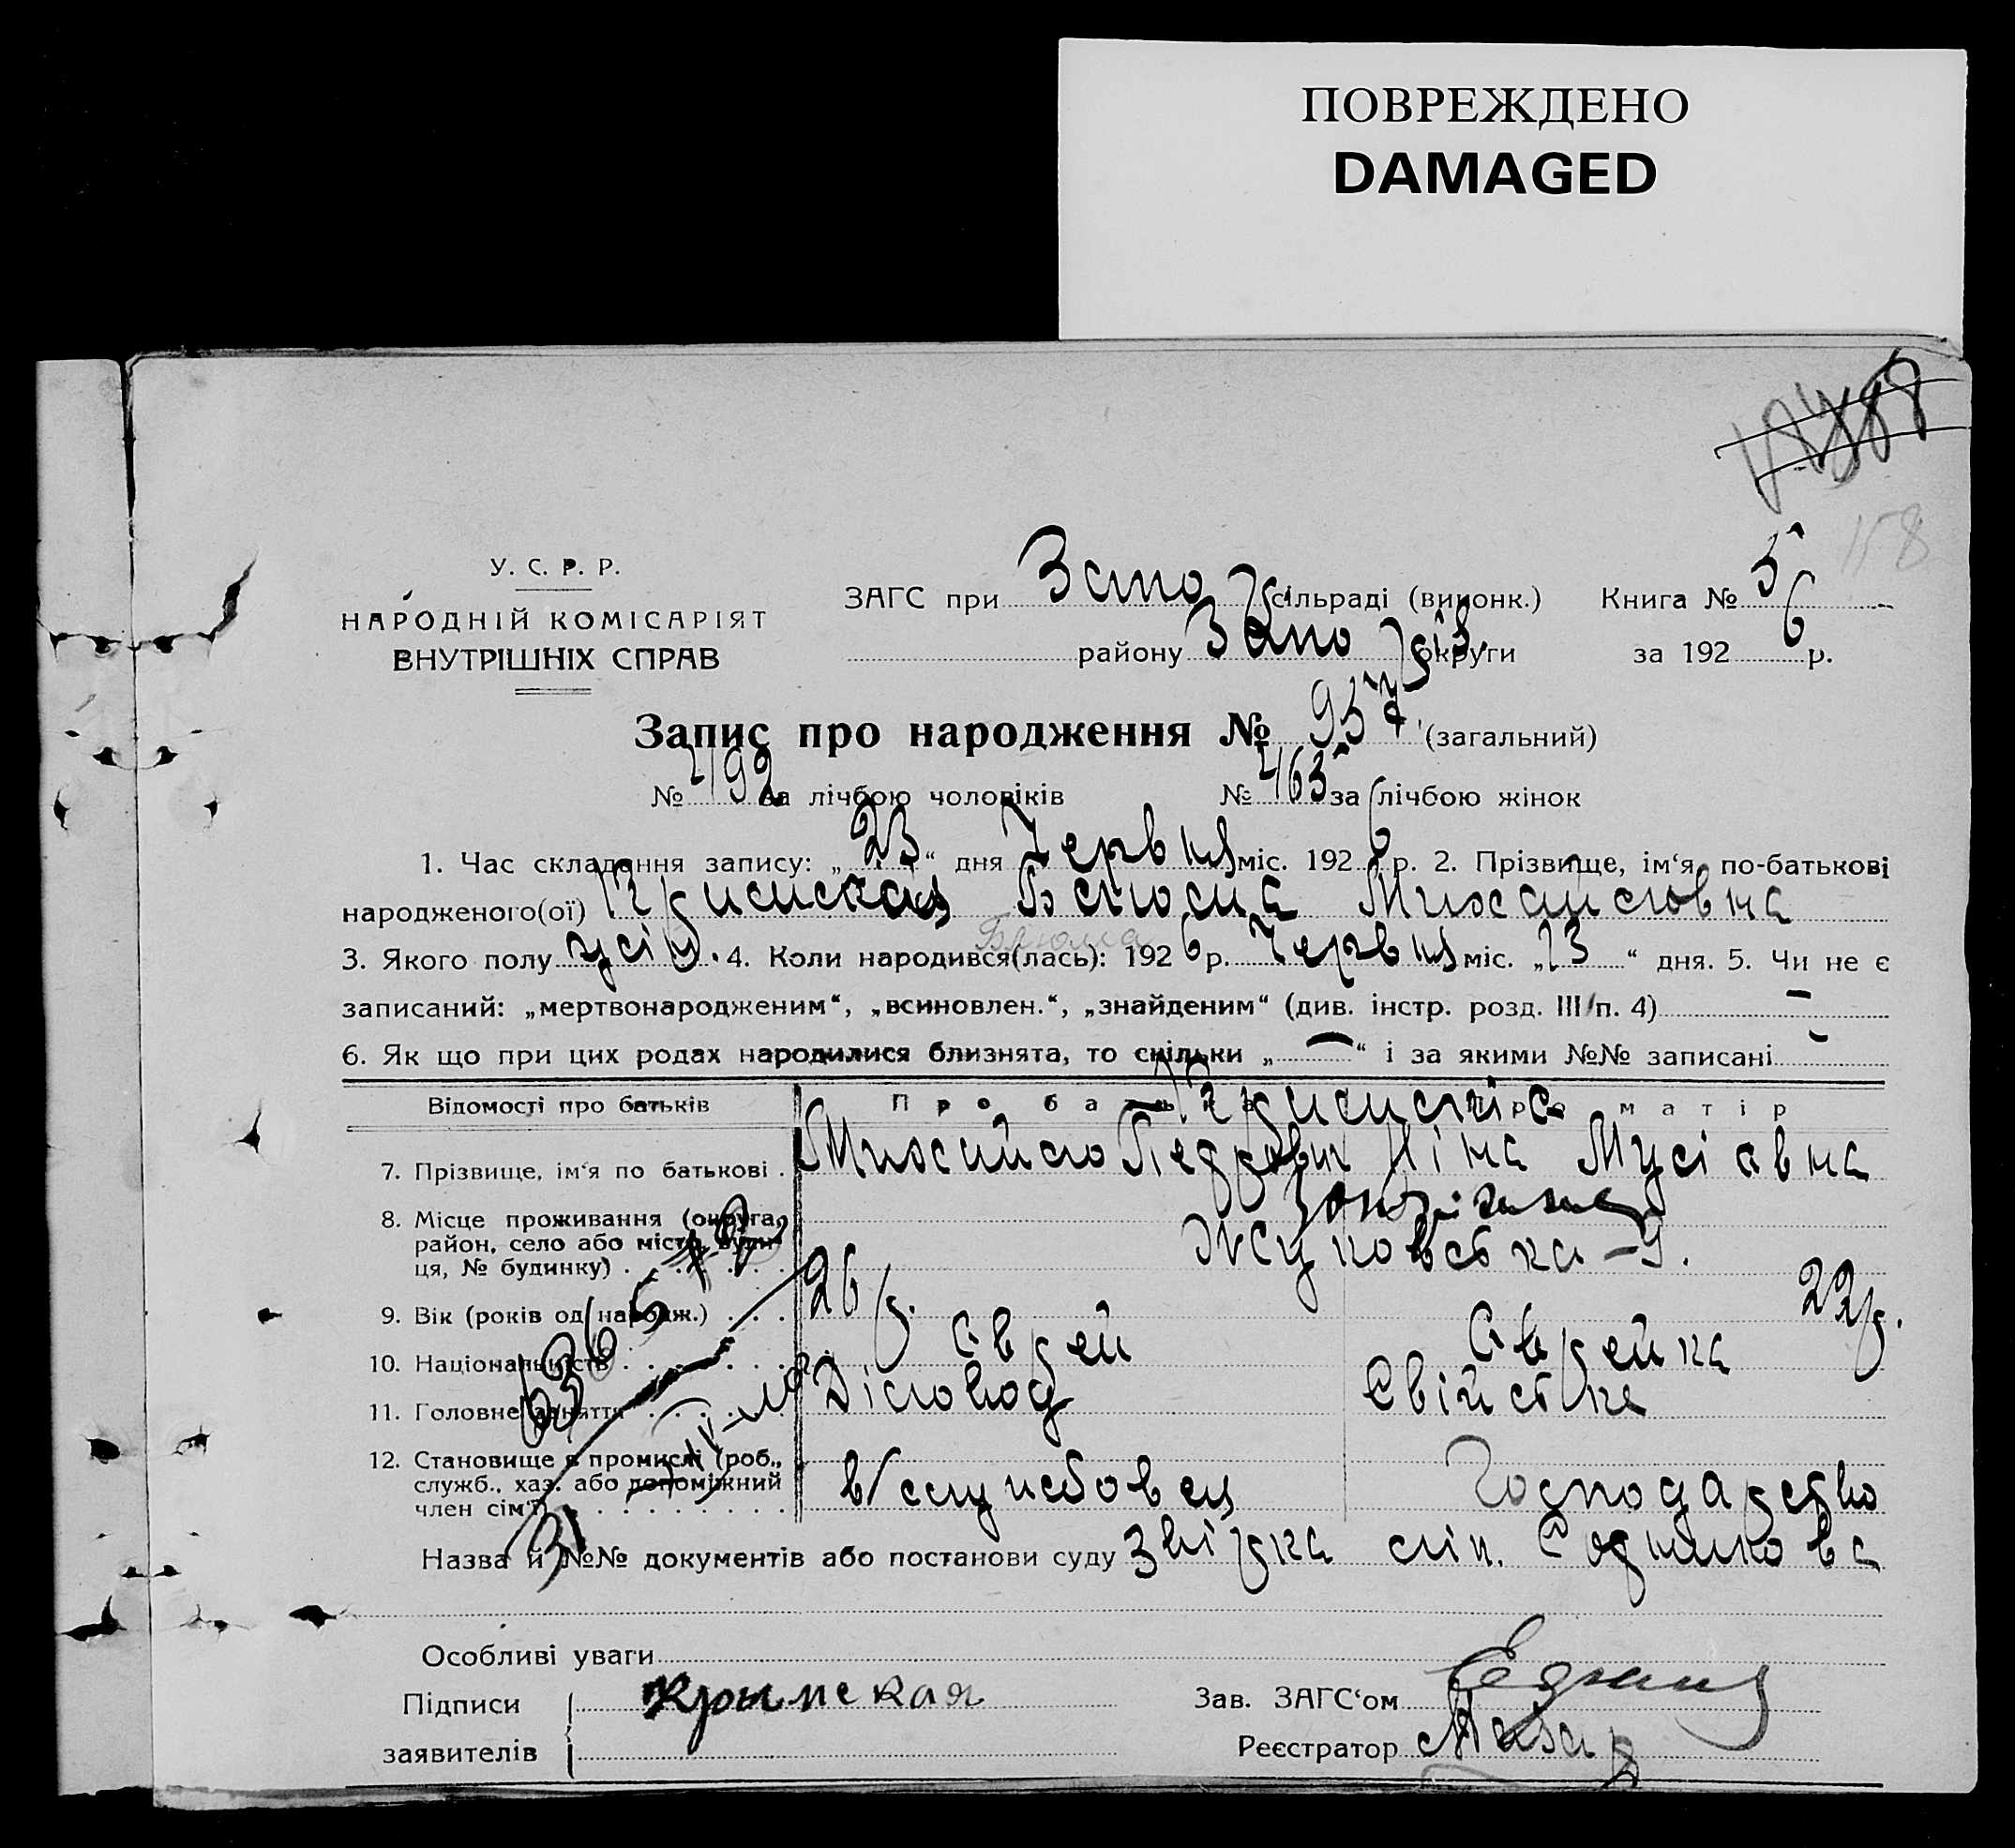 ПОВРЕЖДЕНО
DAMAGED
158
У. С. Р. Р.
НАРОДНІЙ КОМІСАРІЯТ
ВНУТРІШНІХ СПРАВ
ЗАГС при сільраді (виконк.) Книга № 5
району округи за 192 6 р.
Запис про народження № 957 (загальний)
№ 492 за лічбою чоловіків № 465 за лічбою жінок
1. Час складання запису: „ 23 “ дня Червня міс. 192 6 р. 2. Прізвище, ім‘я, по-батькові
народженого(ої) Михайловна
Блюма
3. Якого полу жін. 4. Коли народився(лась): 192 6 р. Червня міс. „ 13 “ дня. 5. Чи не є
записаний: „мертвонародженим“, „всиновлен.“, „знайденим“ (див. інстр. розд. III п. 4) –
6. Як що при цих родах народилися близнята, то скільки „ – “ і за якими №№ записані –
Відомості про батьків Про батька Про матір
7. Прізвище, ім‘я по батькові . Михайло Ніна Мусіавна
8. Місце проживання (округа,
район, село або місто, вули-
ця, № будинку) . Жуковська – 9.
9. Вік (років од народж.) . . . 26 р. 22 р.
10. Національність . Єврей Єврейка
11. Головне заняття . Діловод Свійське
12. Становище в промислі (роб.,
служб., хаз. або допоміжний
член сім‘ї) . в/службовец Господарство
Назва й №№ документів або постанови суду
Особливі уваги
Підписи Крымская Зав. ЗАГС‘ом
заявителів Реєстратор